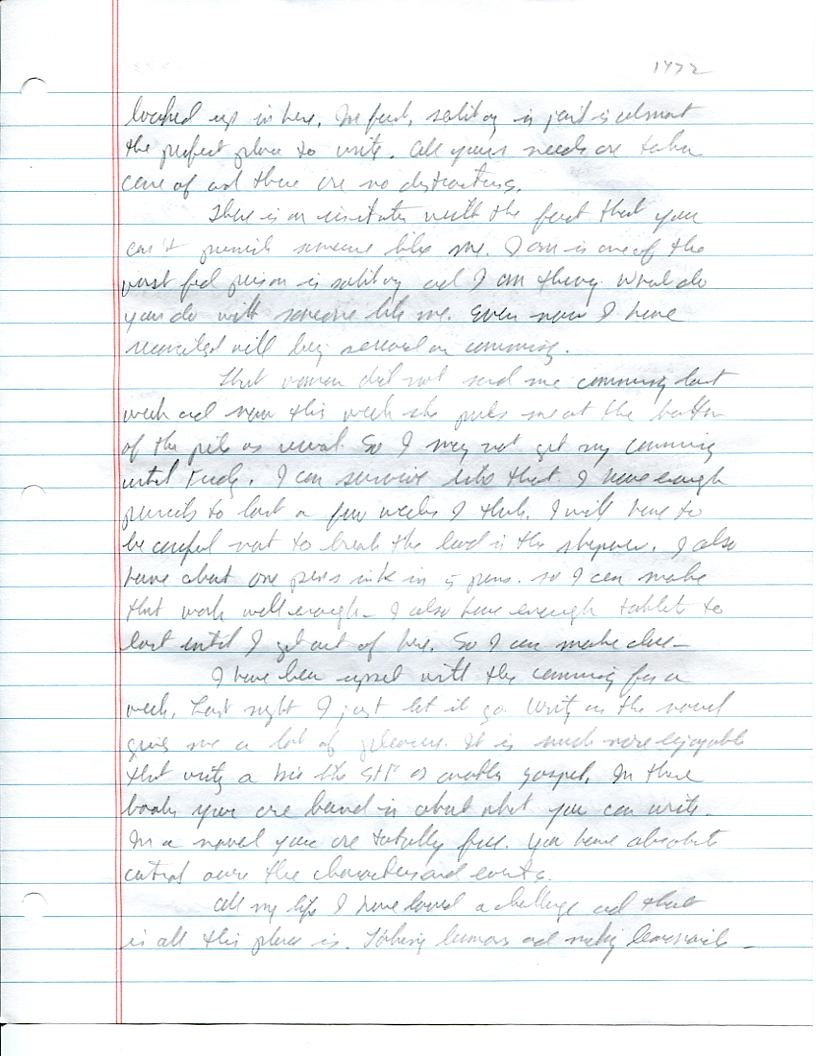 1472
locked up in here. In fact, solitary in jail is almost
the perfect place to write. All your needs are taken
care of and there are no distractions.
There is an with the fact that you
can't punish someone like me. I am in one of the
worst fed prison in solitary and I am What do
you do with someone like me. Even now I have
will being on comming.
That woman did not send me comming last
week and now this week she puts me at the bottom
of the pile as usual. So I may not get my comming
until I can survive like that. I have enough
pencils to last a few weeks I think. I will have to
be careful not to break the lead in the sharpener. I also
have about one pens ink in 5 pens. so I can make
that work well enough - I also have enough tablet to
last until I get out of here. So I can make due -
I have been upset with the comming for a
week. Last night I just let it go. Writing on the novel
gives me a lot of pleasure. It is much more enjoyable
that writing a like the or another gospel. In those
books you are bound in about what you can write.
In a novel you are totally free. You have absolute
control over the characters and events.
All my life I have loved a challenge and that
is all this place is. Taking lemons and making lemonade -